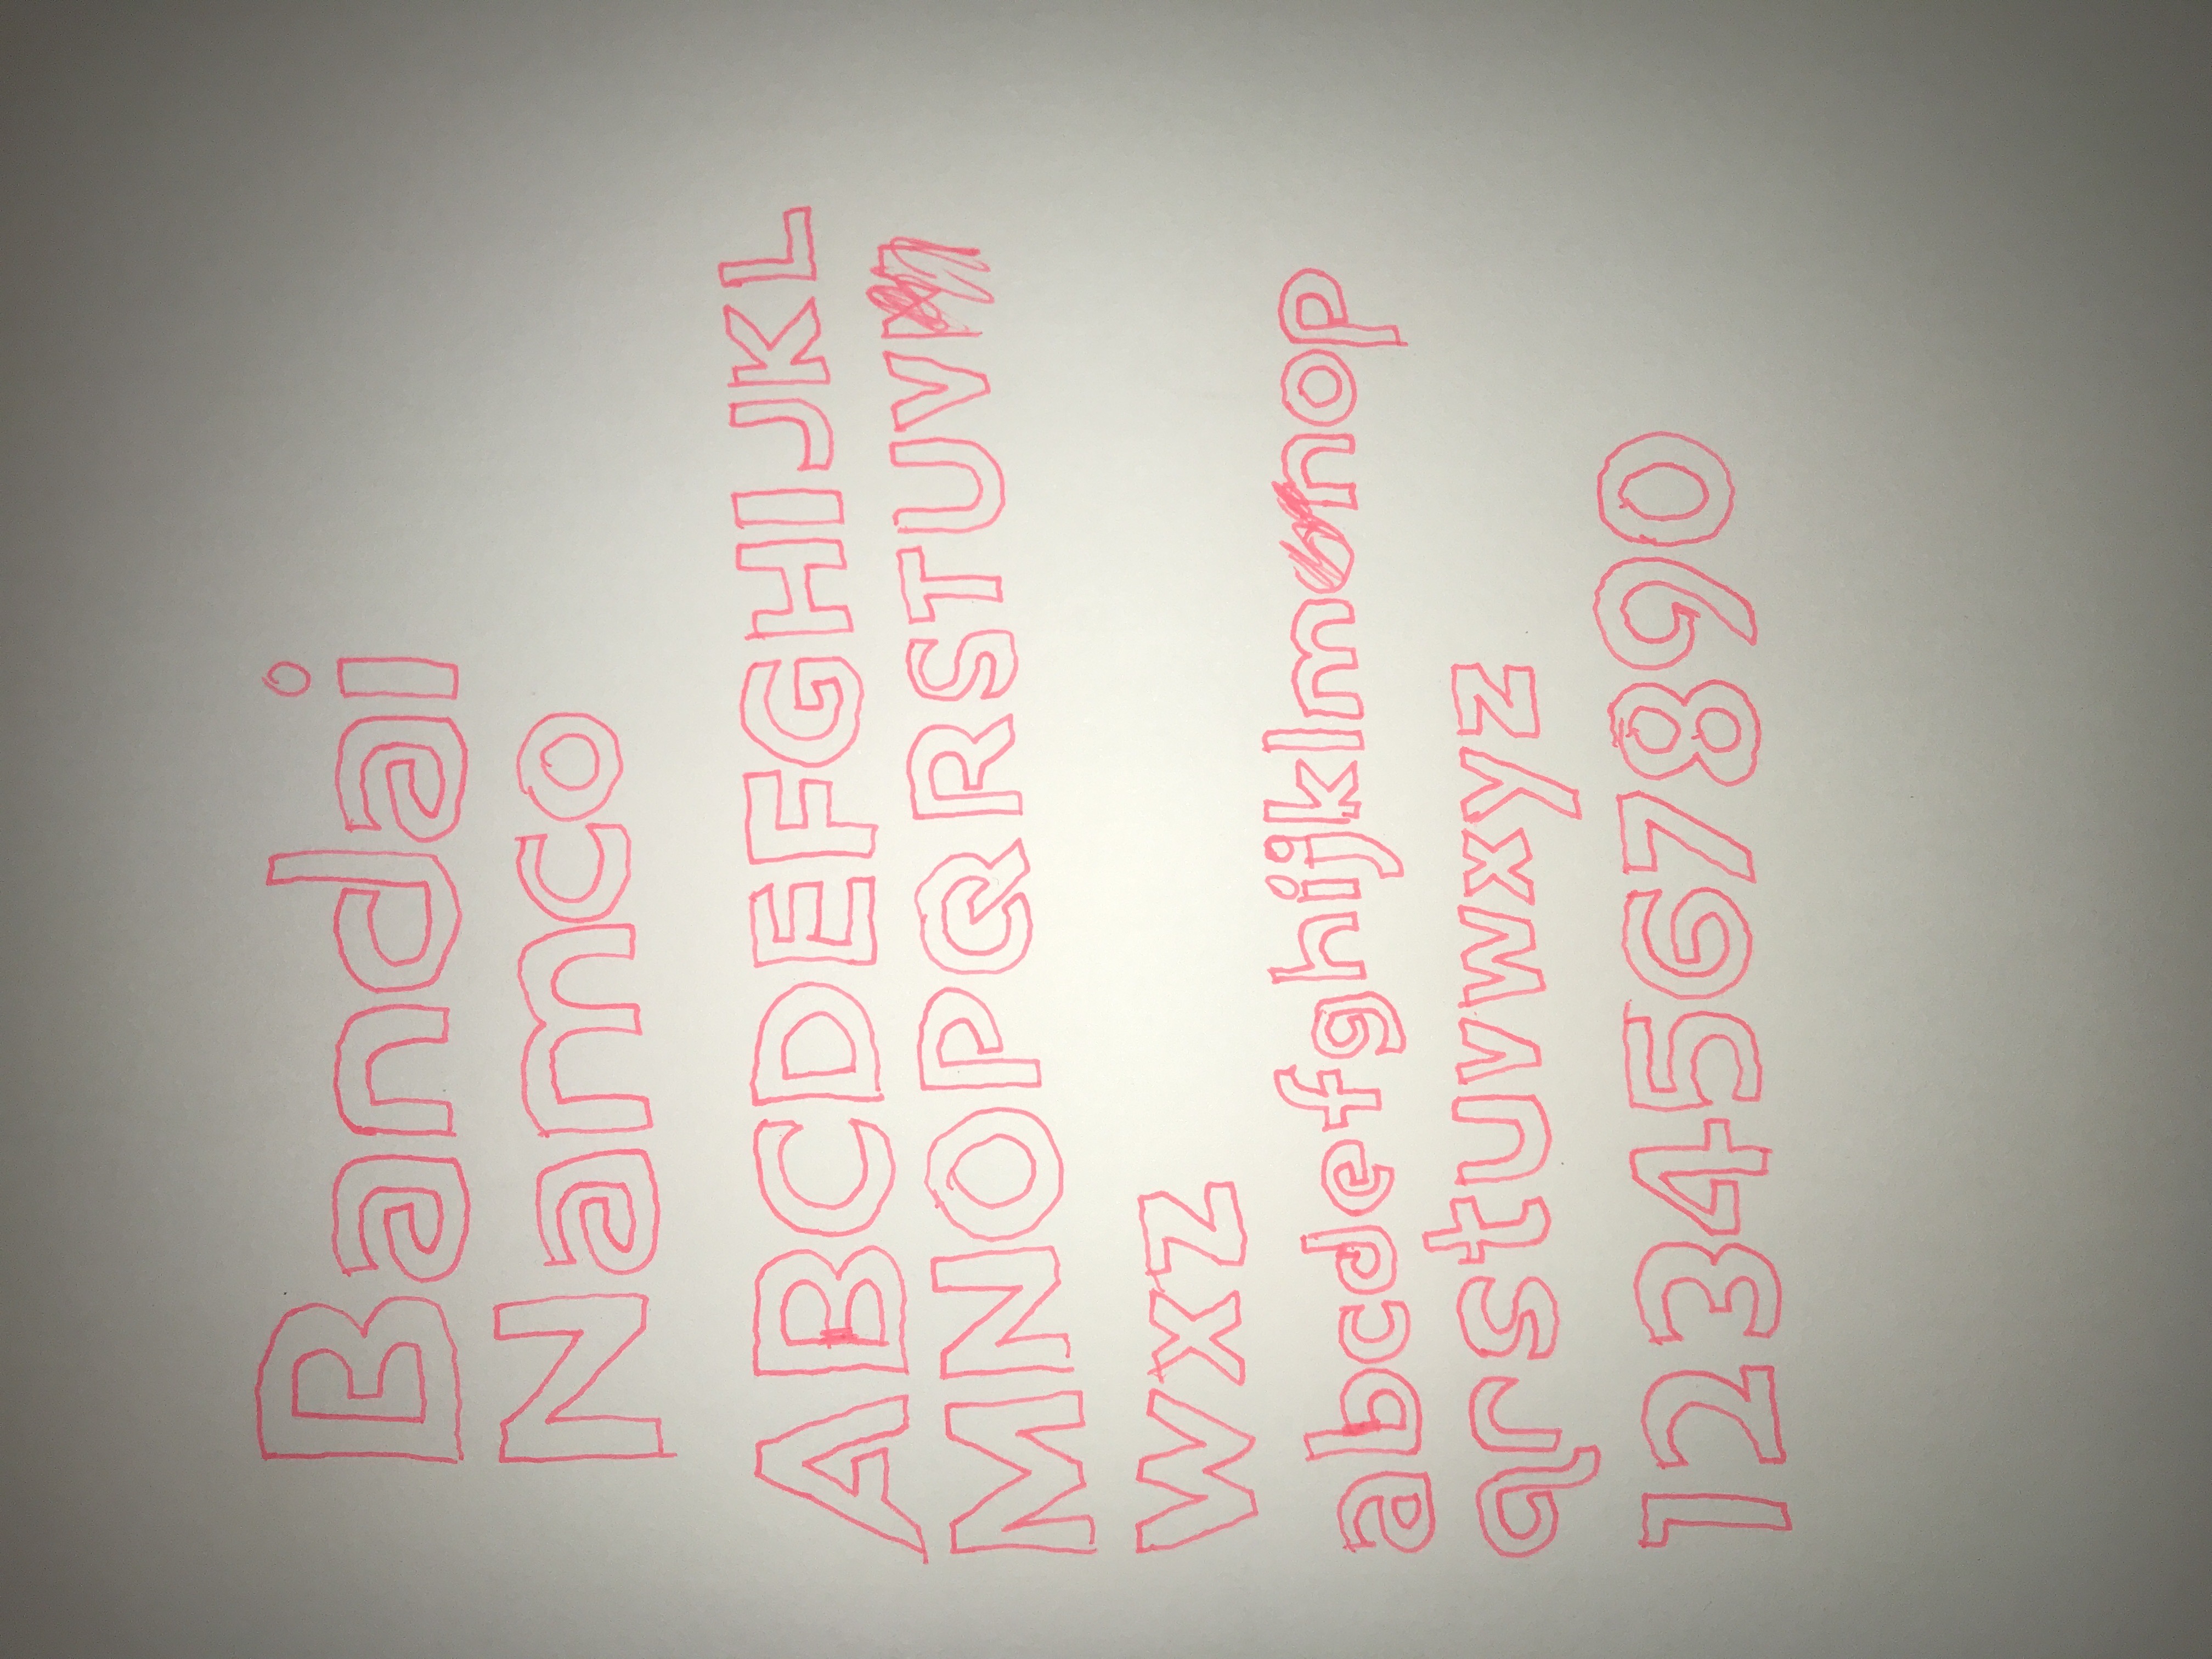 Bandai
Namco
ABCDEFGHIJKL
MNOPQRSTUV
WXZ
abcdefghijklmnop
qrstuvwxyz
1234567890